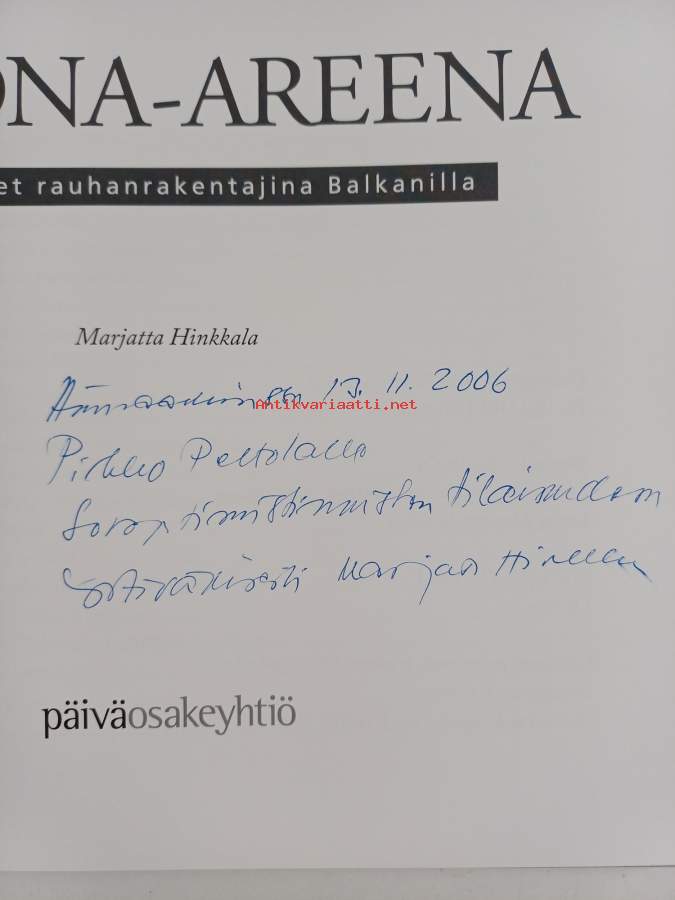 ONA-AREENA
et rauhanrakentajina Balkanilla
Marjatta Hinkkala
Hämeenlinnassa 13.11.2006
Antikvariaatti.net
Pirkko Peltolalle
tilaisuudessa
Ystävällisesti Marjatta Hinkkala
päiväosakeyhtiö